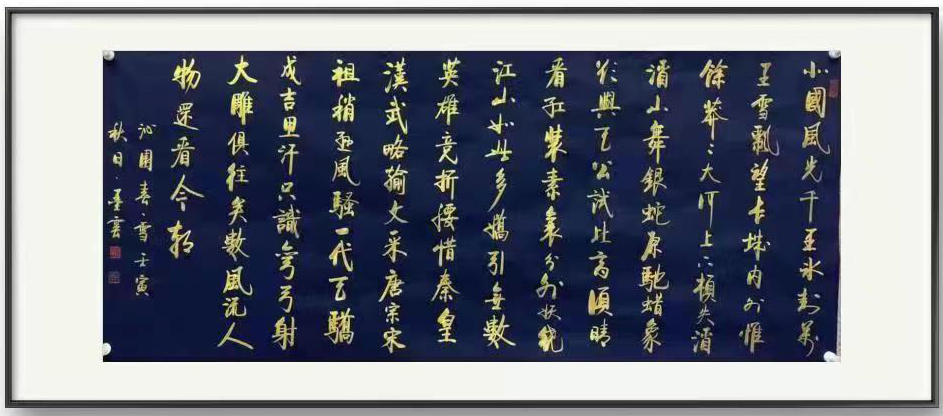 北國風光千里冰封萬
里雪飄望長城内外惟
餘莽〻大河上下頓失滔
滔山舞銀蛇原馳蜡象
欲與天公試比高須晴
看紅裝素裹分外妖嬈
江山如此多嬌引無數
英雄竞折腰惜秦皇
漢武略輸文采唐宗宋
祖稍遜風騷一代天驕
成吉思汗只識彎弓射
大雕俱往矣數風流人
物還看今朝
沁園春·雪壬寅
秋日·墨雲